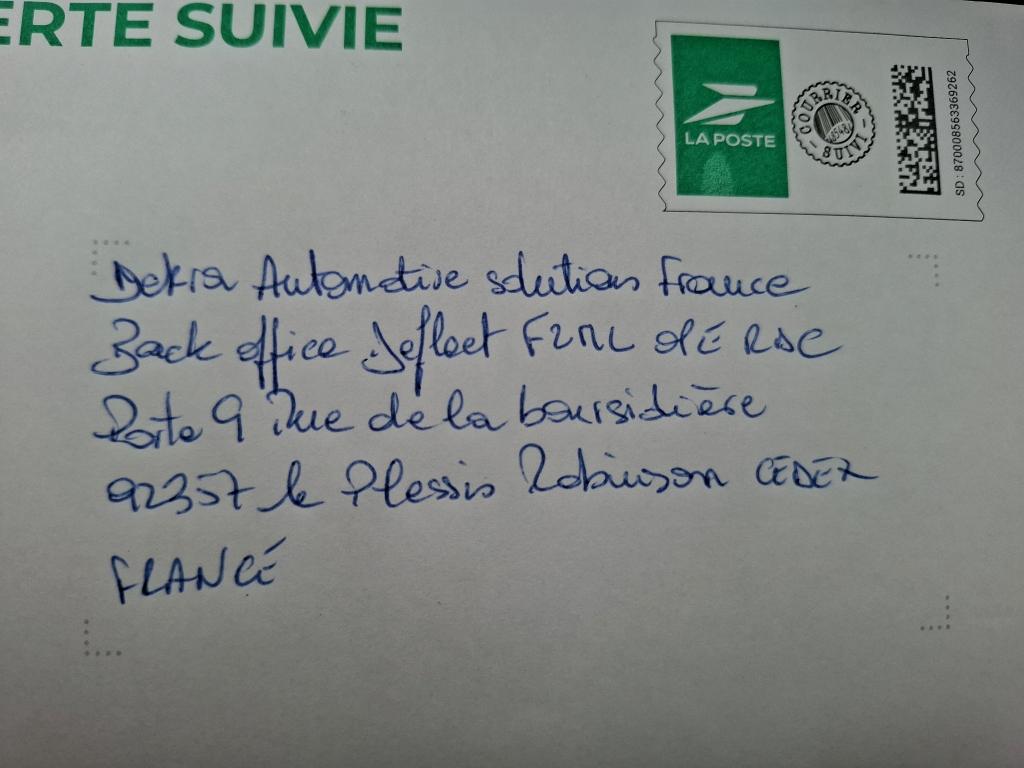 ERTE SUIVIE
LA POSTE
COURRIER SUIVI
SD : 870008563369262
Dekra Automotive solutions France
Back office Jefleet F2ML
Porte 9 Rue de la boursidière
92357 le Plessis Robinson CEDEX
FRANCE